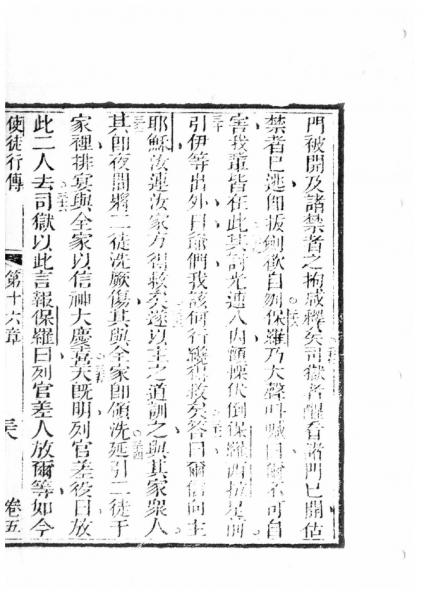 門被開及諸禁者之拘咸釋矣司獄者醒看諸門已開估
禁者已逃即拔劍欲自刎保羅乃大聲叫喊曰爾不可自
害我輩皆在此其討光進入內顫慄伏倒保羅西拉足前
引伊等出外曰爺們我該何行纔得救矣答曰爾信向主
耶穌汝連汝家方得救矣遂以主之道訓之與其家眾人
其即夜間將二徒洗厥傷其與全家即領洗延引二徒于
家裡排宴與全家以信神大慶喜天既明列官差役曰放
此二人去司獄以此言報保羅曰列官差人放爾等如今
使徒行傳 第十六章 卷五